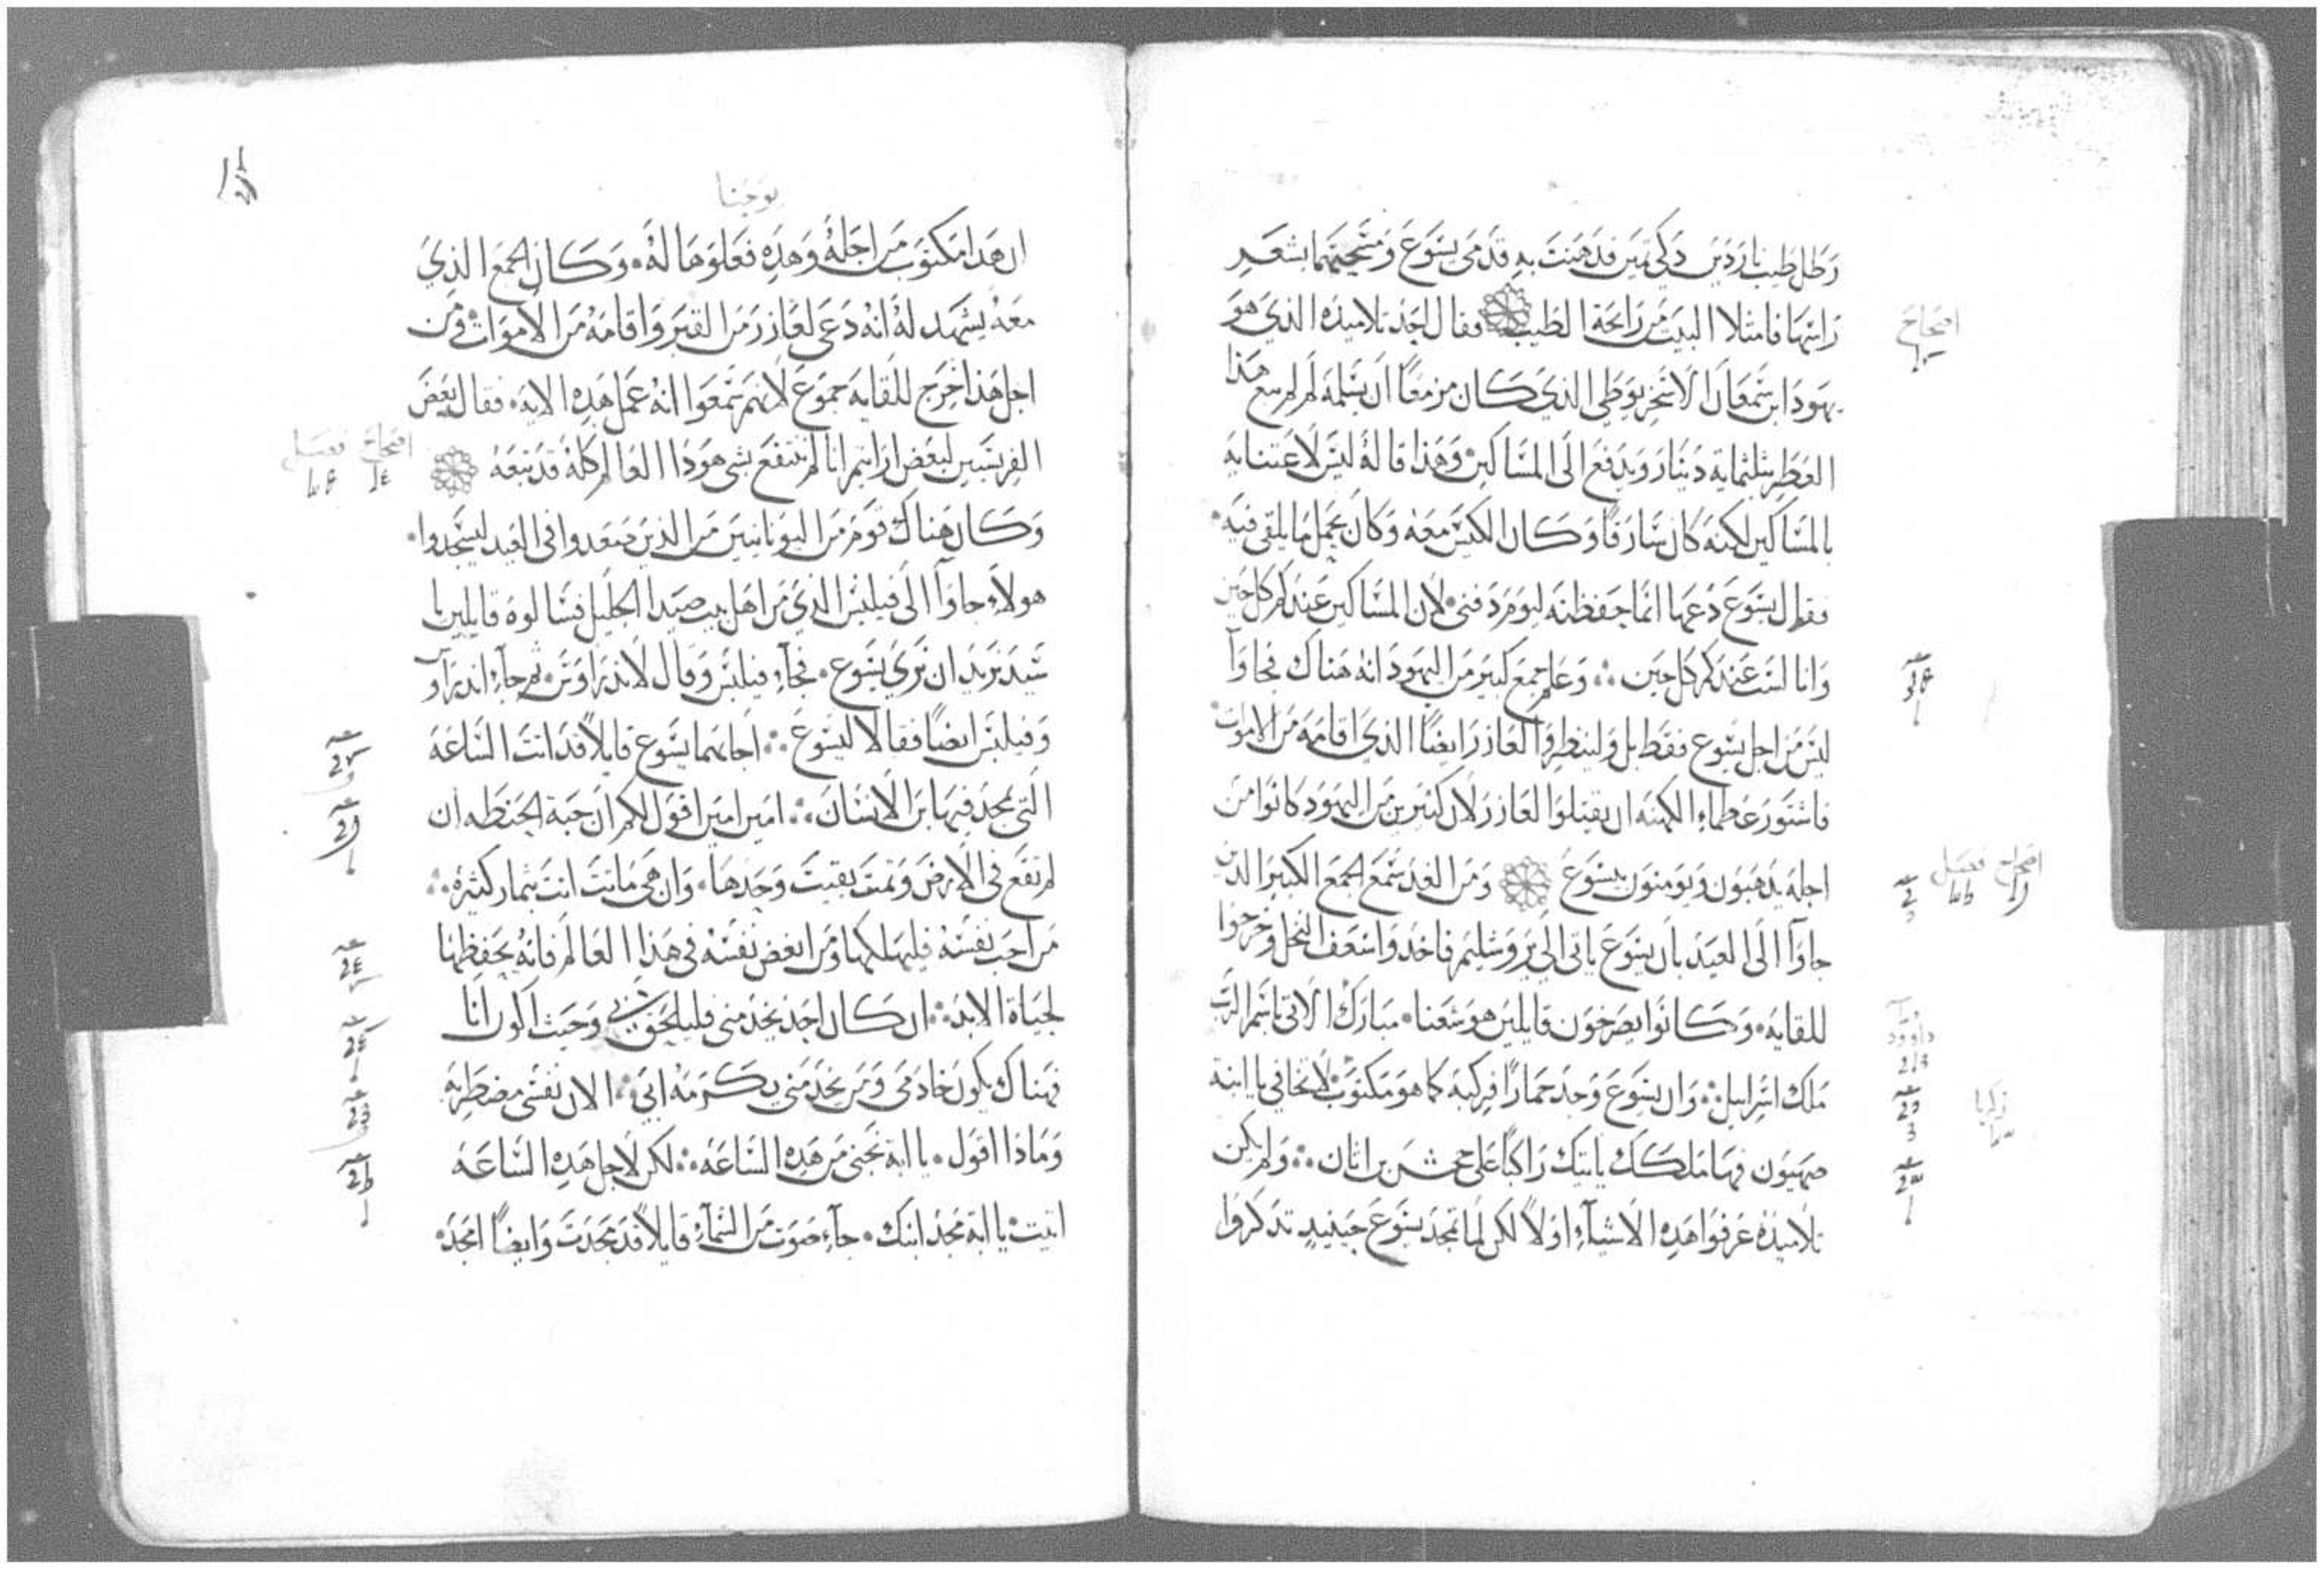 رطل طيب ناردين ذكي ثمين فدهنت به قدمي يسوع ومسحتهما بشعر
راسها فامتلا البيت من رايحة الطيب فقال احد تلاميذه الذي هو
يهودا ابن سمعان الاسخريوطي الذي كان مزمعًا ان يسلمه لم لم يبع هذا
العطر بثلثماية دينار ويدفع الى المساكين وهذا قاله ليس لاعتنايه
بالمساكين لكنه كان سارقًا وكان الكيس معه وكان يحمل ما يلقى فيه
فقال يسوع دعها انما حفظته ليوم دفني لان المساكين عندكم كل حين
وانا لست عندكم كل حين وعلم جمع كبير من اليهود انه هناك فجاوآ
ليس من اجل يسوع فقط بل ولينظروا لعازر ايضًا الذي اقامه من الاموات
فاشتور عظماء الكهنه ان يقتلوا لعازر لان كثيرين من اليهود كانوا من
اجله يذهبون ويومنون بيسوع ومن الغد سمع الجمع الكبير الذين
جاوآ الى العيد بان يسوع ياتي الى يروشليم فاخذوا سعف النخل وخرجوا
للقايه وكانوا يصرخون قايلين هوشعنا مبارك الاتي باسم الرب
ملك اسراييل وان يسوع وجد حمارًا فركبه كما هو مكتوب لا تخافي يا ابنة
صهيون فها ملكك ياتيك راكبًا على جحش بن اتان ولم يكن
تلاميذه عرفوا هذه الاشيآء اولاً لكن لما تمجد يسوع حينيذ تذكروا
اصحاح
اصحاح فصل
داوود
زكريا
يوحنا
ان هذا مكتوب من اجله وهذه فعلوها له وكان الجمع الذي
معه يشهد له انه دعى لعازر من القبر واقامه من الاموات ومن
اجل هذا خرج للقايه جموع لانهم سمعوا انه عمل هذه الايه فقال بعض
الفريسيين لبعض ارايتم انا لم ننتفع بشي هوذا العالم كله قد تبعه
وكان هناك قوم من اليونانيين من الذين صعدوا في العيد ليسجدوا
هولاء جاوآ الى فيلبس الذي من اهل بيت صيدا الجليل فسالوه قايلين يا
سيد نريد ان نرى يسوع فجاء فيلبس وقال لاندراوس ثم جاء اندراو
وفيلبس ايضًا فقالا ليسوع اجابهما يسوع قايلاً قد اتت الساعه
التي يمجد فيها ابن الانسان امين امين اقول لكم ان حبة الحنطه ان
لم تقع في الارض وتمت بقيت وحدها وان هي ماتت اتت بثمار كثيره
من احب نفسه فليهلكها ومن ابغض نفسه في هذا العالم فانه يحفظها
لحياة الابد ان كان احد يخدمني فليلحقني وحيث اكون انا
فهناك يكون خادمي ومن يخدمني يكرمه ابي الان نفسي مضطربه
وماذا اقول يا ابة نجني من هذه الساعه لكن لاجل هذه الساعه
اتيت يا ابة مجد ابنك جاء صوت من السمآء قايلاً قد مجدت وايضًا امجد
اصحاح فصل